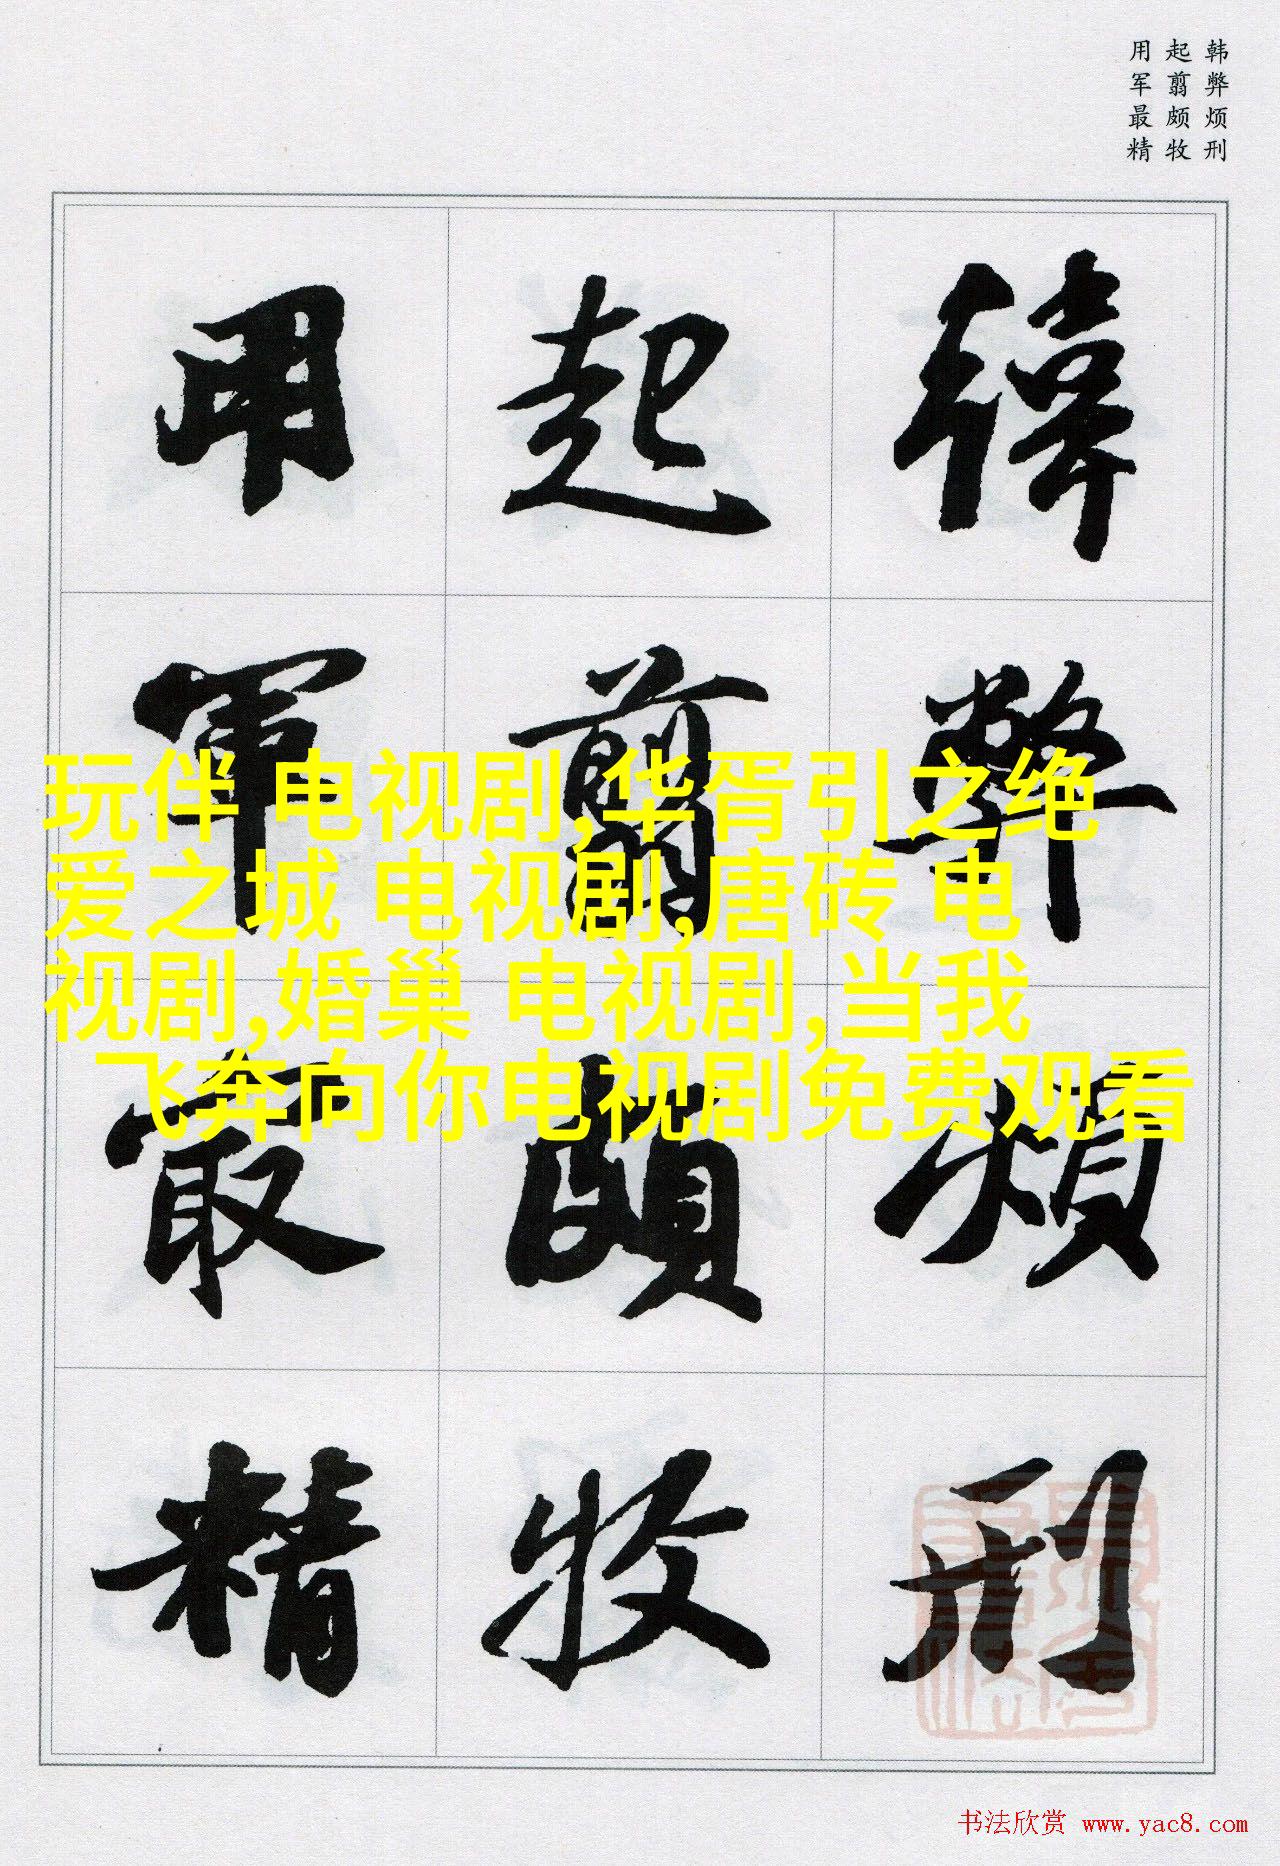 韩弊烦刑
起翦颇牧
用军最精
韓弊煩刑
起翦頗牧
用軍最精
玩伴 电视剧,华胥引之绝
爱之城 电视剧,唐砖 电
视剧,婚巢 电视剧,当我
飞奔向你电视剧免费观看
书法欣赏 www.yac8.com